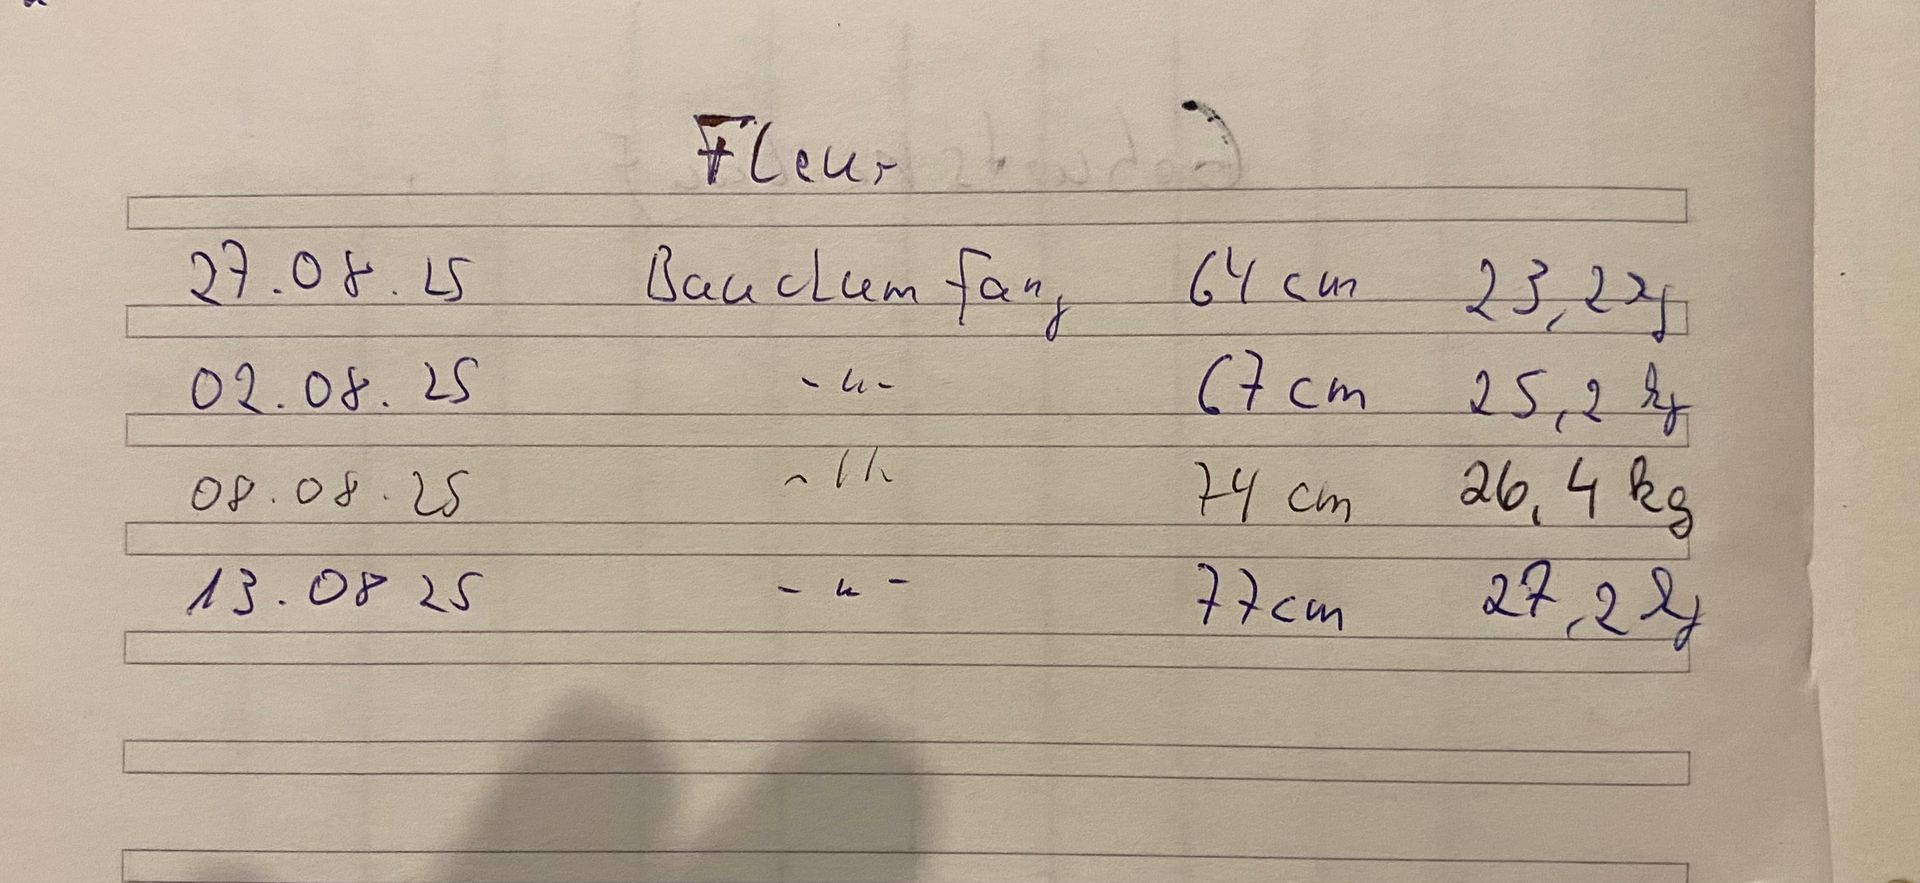 Fleur
27.08.25 Bauchumfang 64 cm 23,2 kg
02.08.25 -"- 67 cm 25,2 kg
08.08.25 -"- 74 cm 26,4 kg
13.08 25 -"- 77 cm 27,2 kg